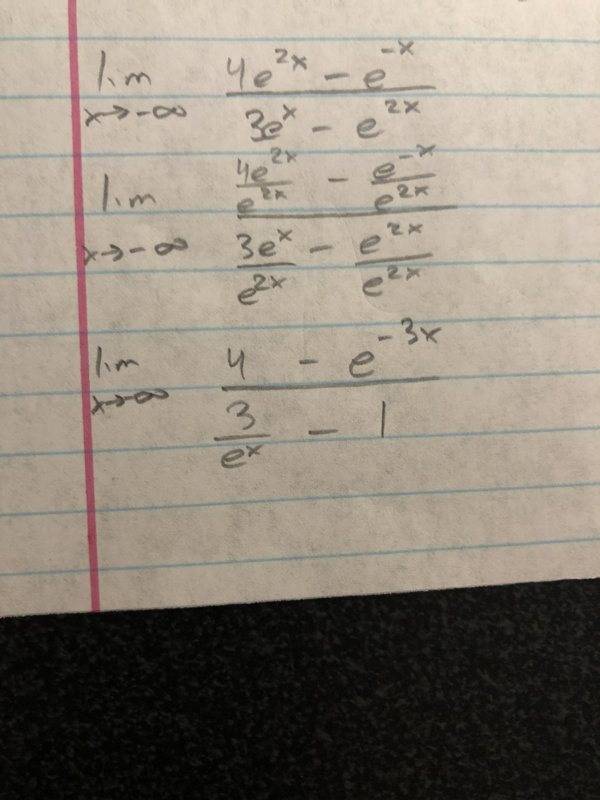 lim x→-∞ (4e^{2x} - e^{-x}) / (3e^{x} - e^{2x})
lim x→-∞ (4e^{2x}/e^{2x} - e^{-x}/e^{2x}) / (3e^{x}/e^{2x} - e^{2x}/e^{2x})
lim x→-∞ (4 - e^{-3x}) / (3/e^{x} - 1)